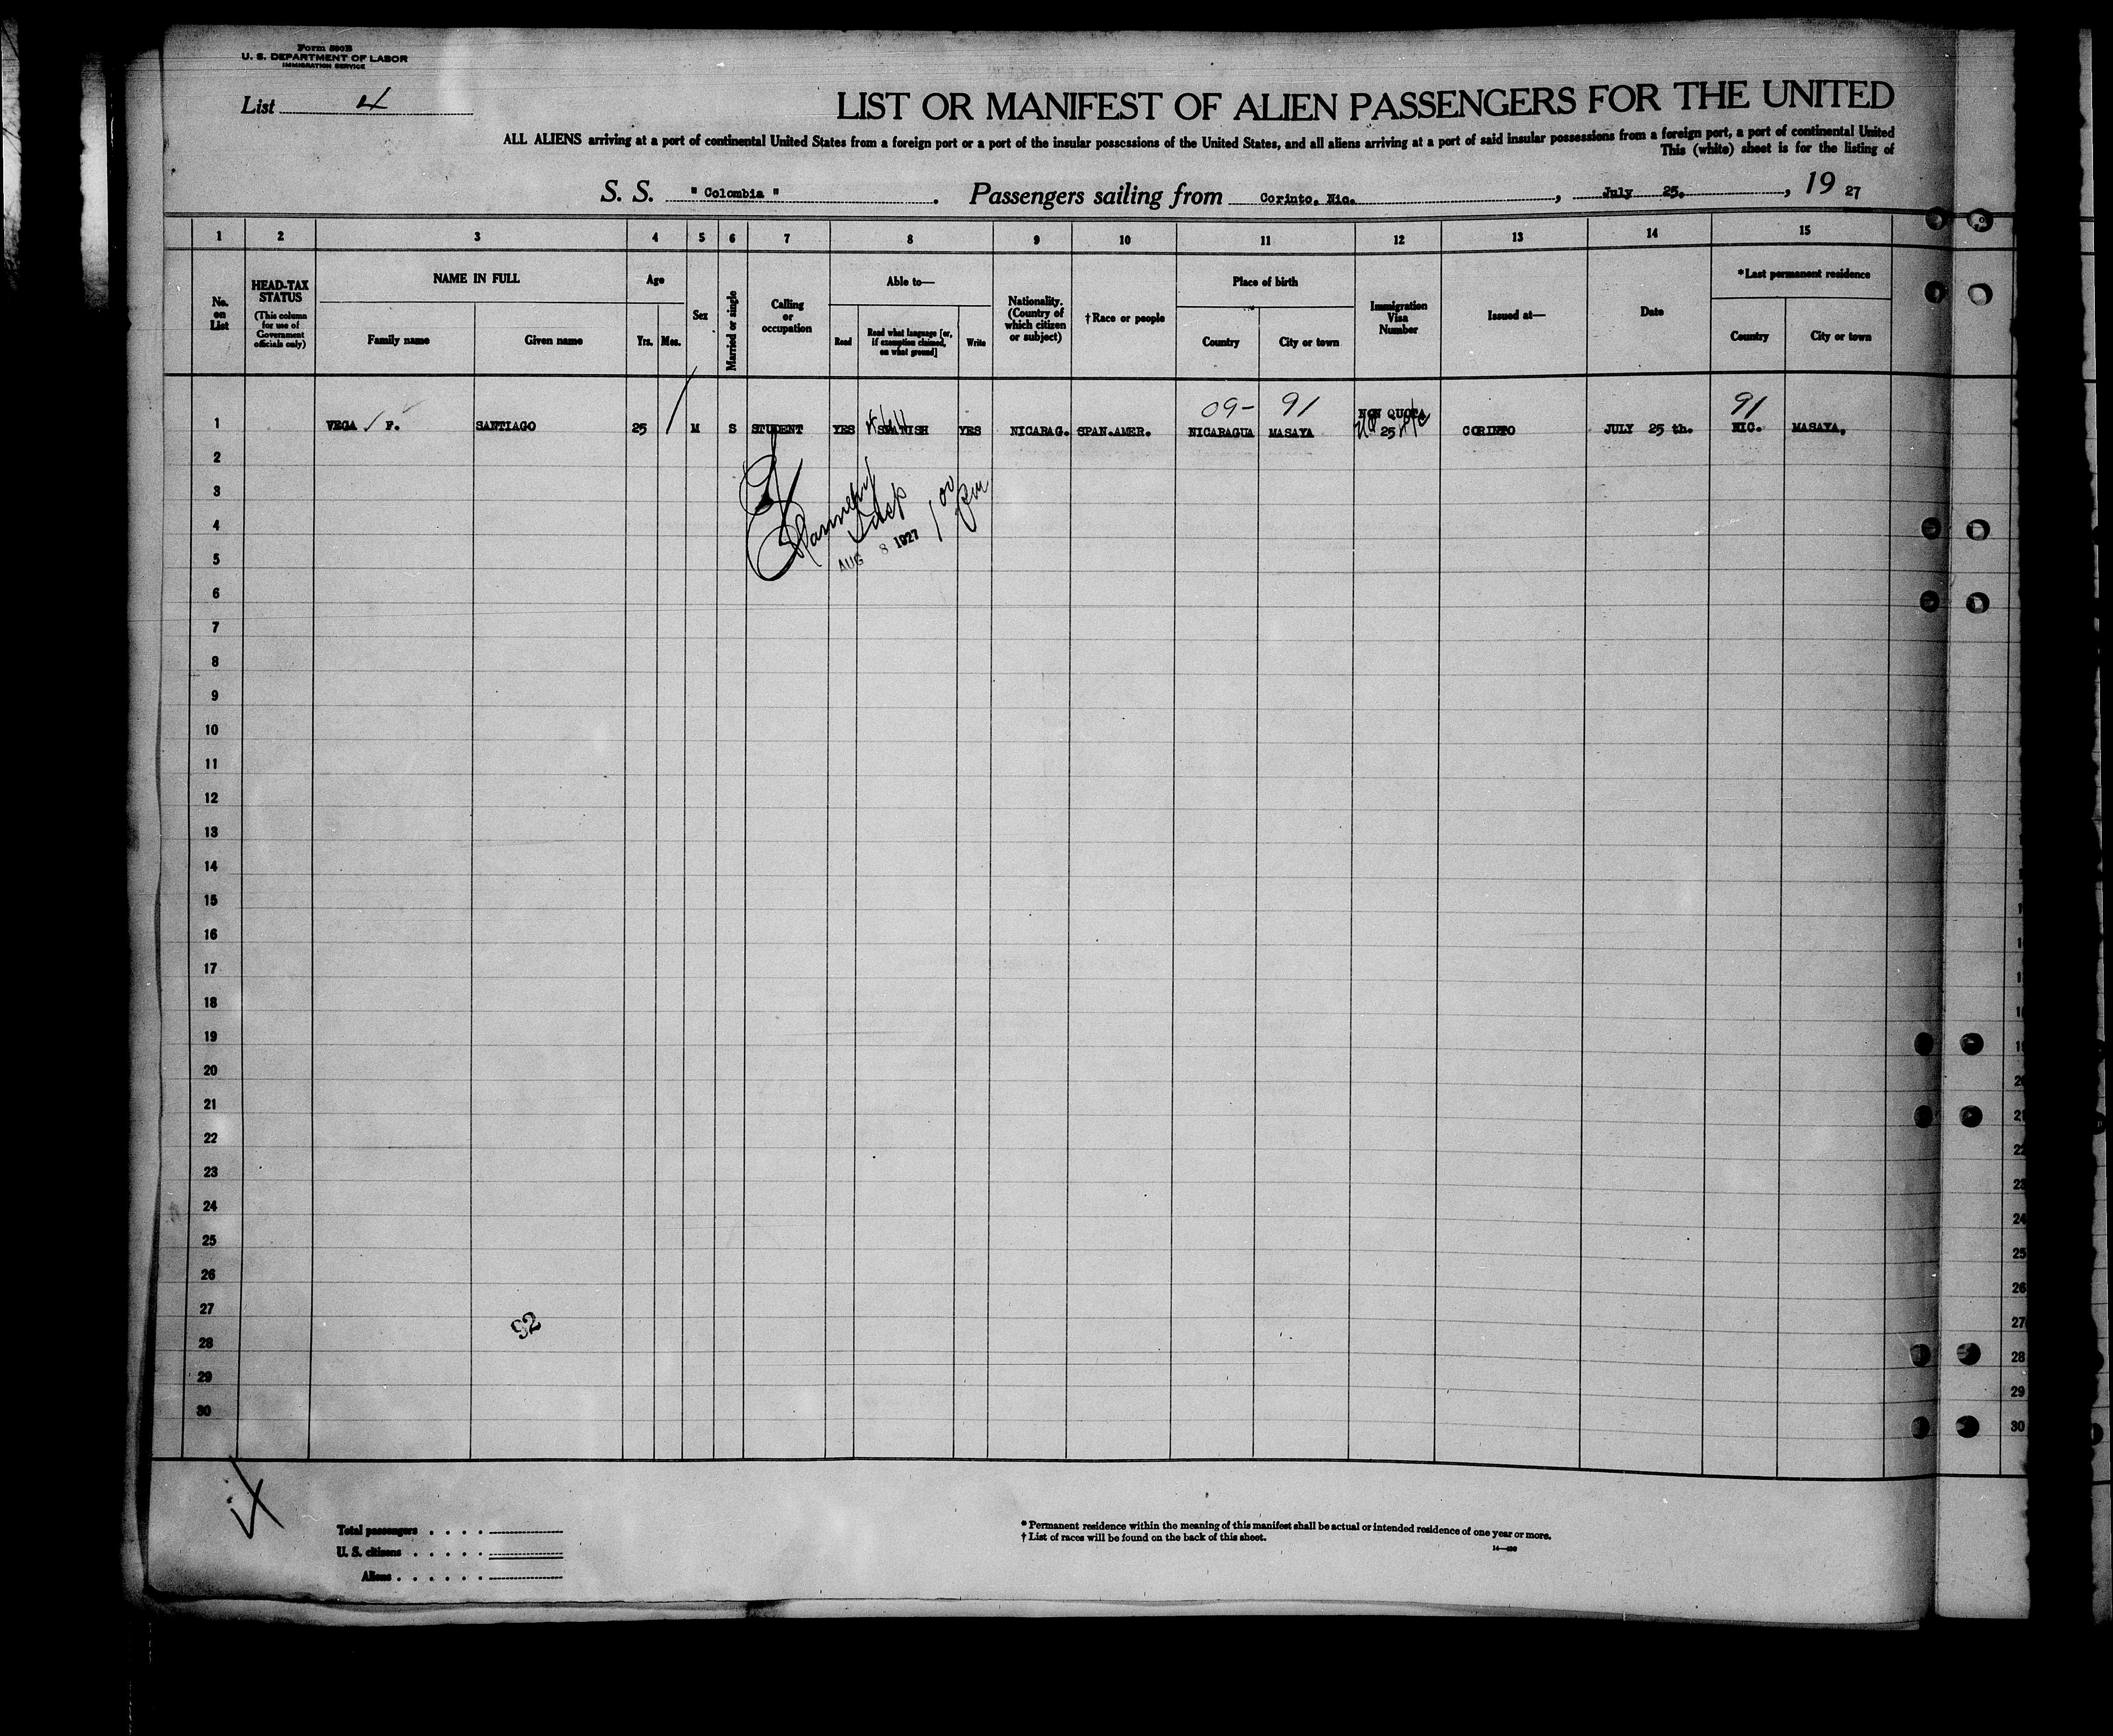 Form 590B
U. S. DEPARTMENT OF LABOR
IMMIGRATION SERVICE
List 4
LIST OR MANIFEST OF ALIEN PASSENGERS FOR THE UNITED
ALL ALIENS arriving at a port of continental United States from a foreign port or a port of the insular possessions of the United States, and all aliens arriving at a port of said insular possessions from a foreign port, a port of continental United
This (white) sheet is for the listing of
S. S. " Colombia " . Passengers sailing from Corinto, Nic. , July 25. , 19 27
1 2 3 4 5 6 7 8 9 10 11 12 13 14 15
No. on List
HEAD-TAX STATUS (This column for use of Government officials only)
NAME IN FULL
Family name Given name
Age
Yrs. Mos.
Sex
Married or single
Calling or occupation
Able to—
Read
Read what language [or, if exemption claimed, on what ground]
Write
Nationality. (Country of which citizen or subject)
†Race or people
Place of birth
Country City or town
Immigration Visa Number
Issued at—
Date
*Last permanent residence
Country City or town
09- 91 91
NON QUOTA
1 VEGA F. SANTIAGO 25 M S STUDENT YES SPANISH YES NICARAG. SPAN.AMER. NICARAGUA MASAYA 25 CORINTO JULY 25 th. NIC. MASAYA.
2
3
4
5
AUG 8 1927
6
7
8
9
10
11
12
13
14
15
16
17
18
19
20
21
22
23
24
25
26
27
28
29
30
92
19
20
21
22
23
24
25
26
27
28
29
30
Total passengers . . . .
U. S. citizens . . . . .
Aliens . . . . . .
* Permanent residence within the meaning of this manifest shall be actual or intended residence of one year or more.
† List of races will be found on the back of this sheet.